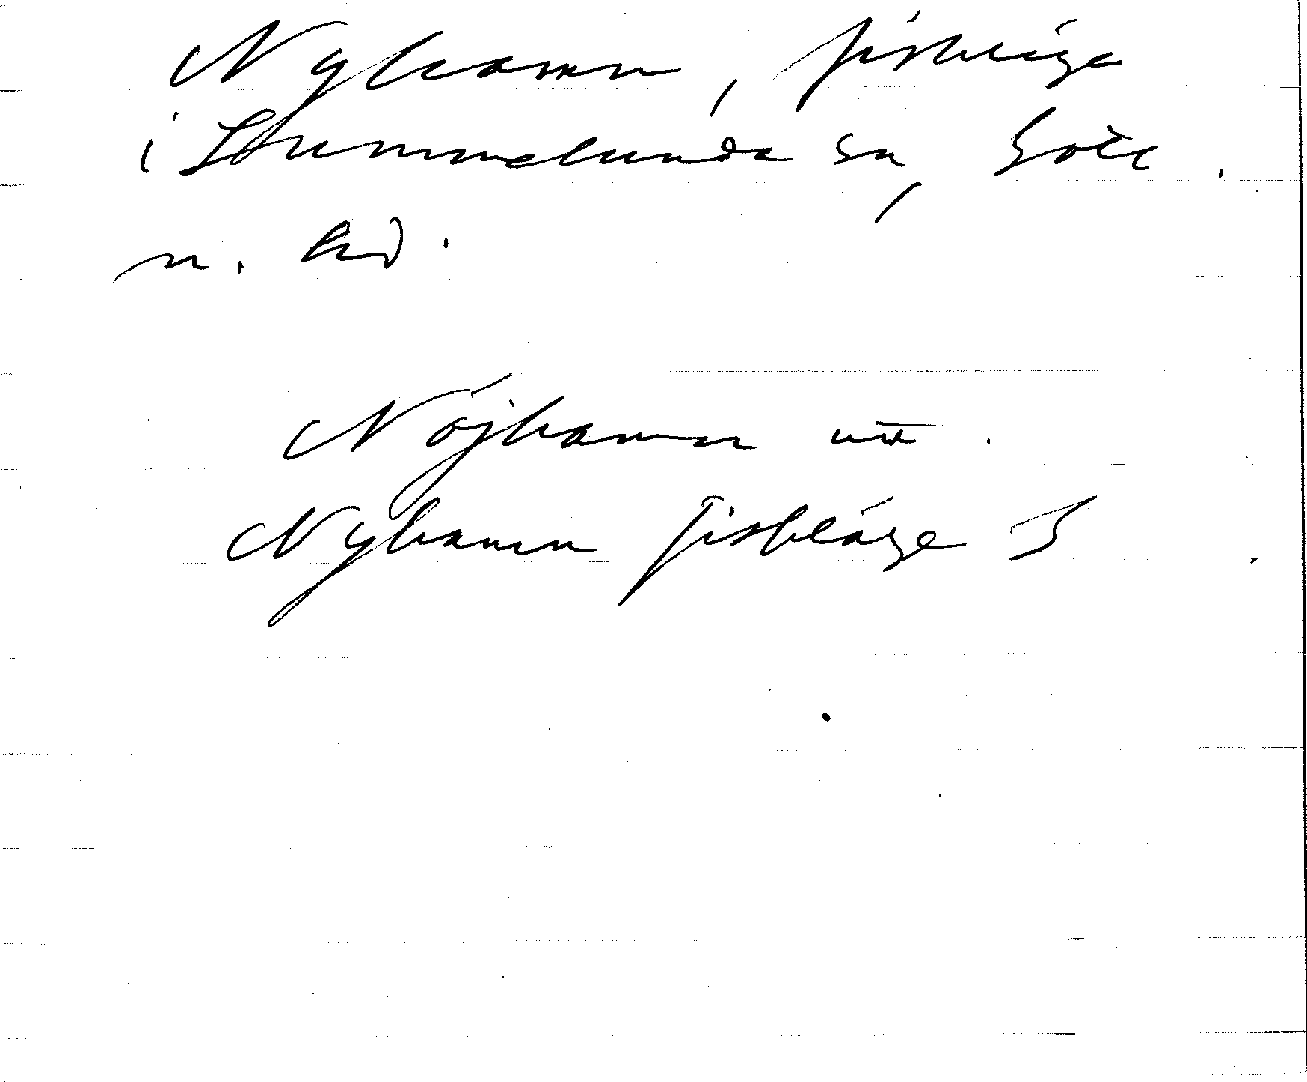 Nyhamn, fiskläge
i Lummelunda sn, Gotl.
n. hd.
Nöjhamn utt.
Nyhamn fiskläge S